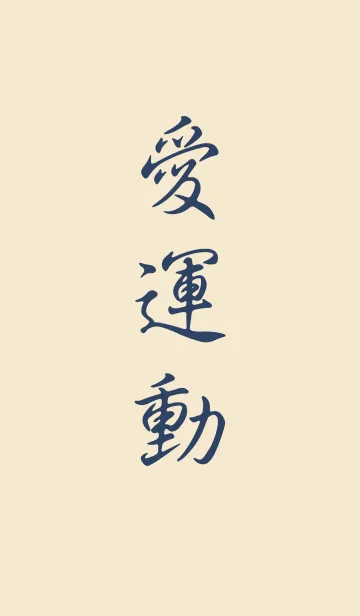 愛運動